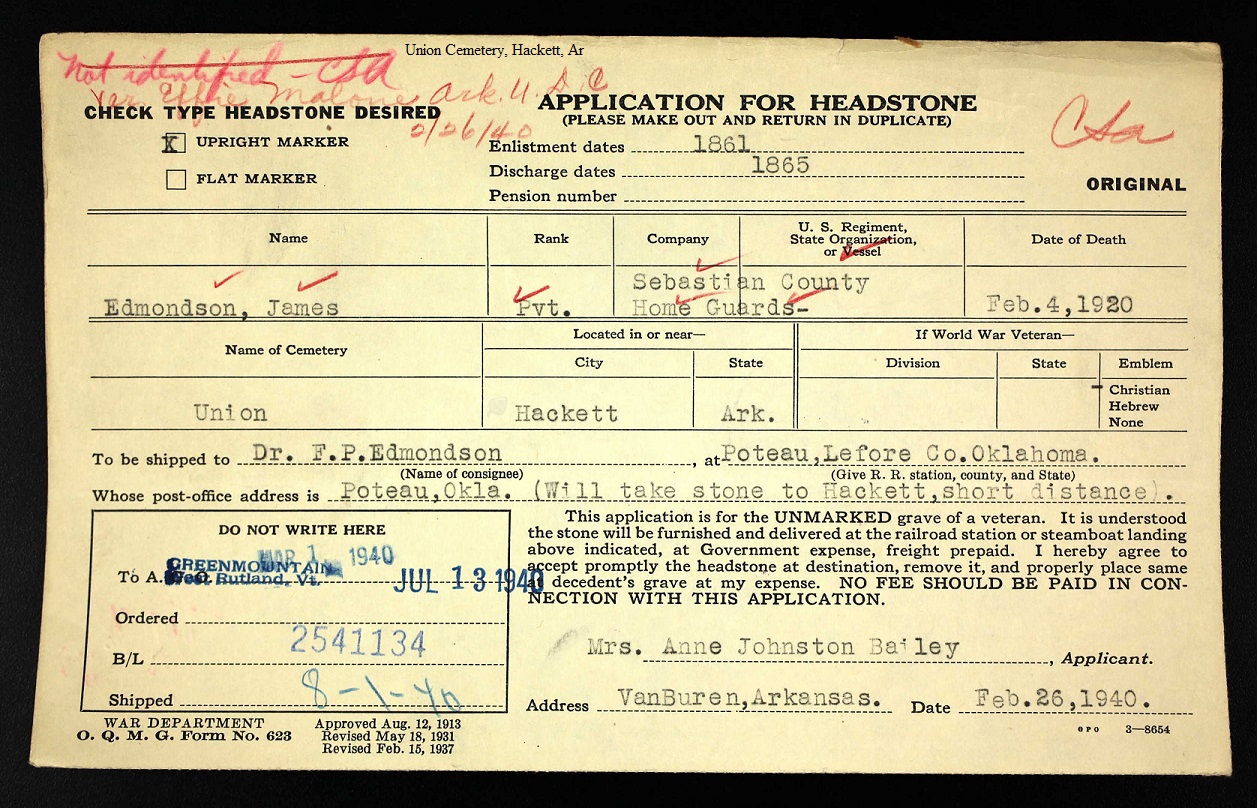 Union Cemetery, Hackett, Ar
Not identified - CSA
Ver Effie Malone Ark. U. D. C
2/26/40
CHECK TYPE HEADSTONE DESIRED
X UPRIGHT MARKER
FLAT MARKER
APPLICATION FOR HEADSTONE
(PLEASE MAKE OUT AND RETURN IN DUPLICATE)
Enlistment dates 1861
Discharge dates 1865
Pension number
CSA
ORIGINAL
Name
Rank
Company
U. S. Regiment,
State Organization,
or Vessel
Date of Death
Edmondson, James
Pvt.
Sebastian County
Home Guards-
Feb.4,1920
Name of Cemetery
Located in or near—
City
State
If World War Veteran—
Division
State
Emblem
Christian
Hebrew
None
Union
Hackett
Ark.
To be shipped to Dr. F.P.Edmondson, at Poteau,Lefore Co.Oklahoma.
(Name of consignee) (Give R. R. station, county, and State)
Whose post-office address is Poteau,Okla. (Will take stone to Hackett,short distance).
DO NOT WRITE HERE
MAR 1 1940
GREENMOUNTAIN
To A.
West Rutland, Vt.
JUL 13 1940
Ordered
2541134
B/L
Shipped 8-1-40
This application is for the UNMARKED grave of a veteran. It is understood
the stone will be furnished and delivered at the railroad station or steamboat landing
above indicated, at Government expense, freight prepaid. I hereby agree to
accept promptly the headstone at destination, remove it, and properly place same
at decedent's grave at my expense. NO FEE SHOULD BE PAID IN CON-
NECTION WITH THIS APPLICATION.
Mrs. Anne Johnston Bailey, Applicant.
Address VanBuren,Arkansas. Date Feb.26,1940.
WAR DEPARTMENT
O. Q. M. G. Form No. 623
Approved Aug. 12, 1913
Revised May 18, 1931
Revised Feb. 15, 1937
GPO 3—8654